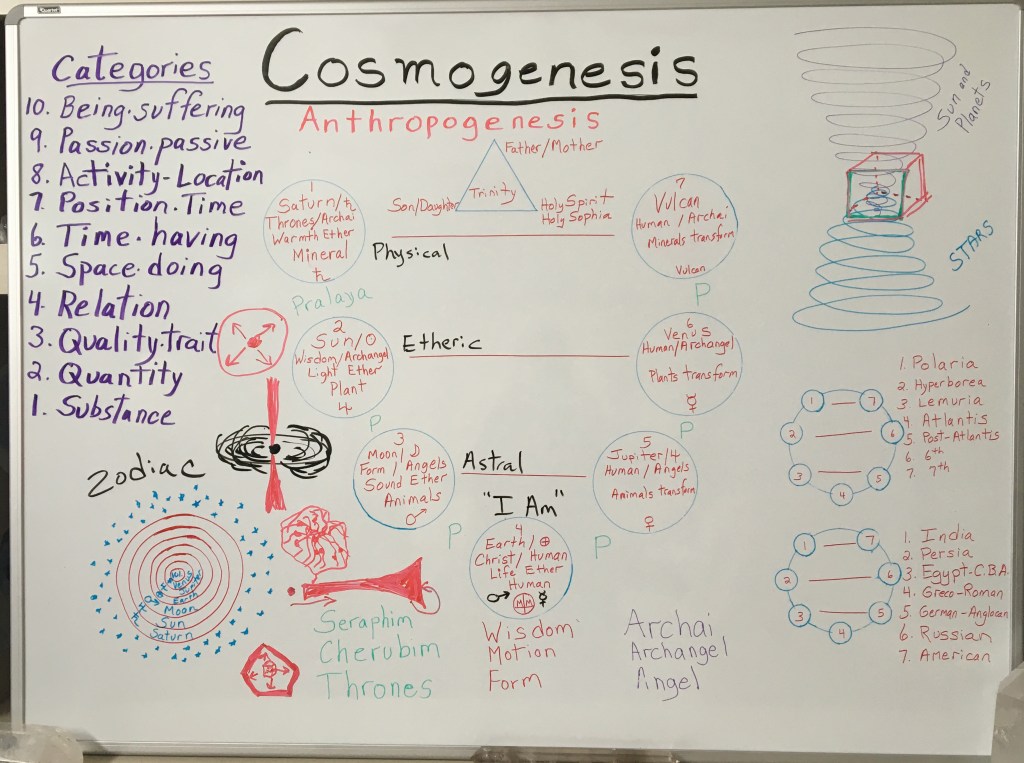 Quartet
Cosmogenesis
Anthropogenesis
Categories
10. Being·suffering
9. Passion·passive
8. Activity-Location
7. Position·Time
6. Time·having
5. Space·doing
4. Relation
3. Quality·trait
2. Quantity
1. Substance
Father/Mother
Trinity
Son/Daughter
Holy Spirit
Holy Sophia
1
Saturn/♄
Thrones/Archai
Warmth Ether
Mineral
♄
Physical
7
Vulcan
Human/Archai
Minerals transform
Vulcan
Pralaya
P
2
Sun/☉
Wisdom/Archangel
Light Ether
Plant
♃
Etheric
6
Venus
Human/Archangel
Plants transform
☿
P
P
3
Moon/☽
Form/Angels
Sound Ether
Animals
♂
Astral
5
Jupiter/♃
Human/Angels
Animals transform
♀
P
P
"I Am"
4
Earth/⊕
Christ/Human
Life Ether
Human
♂ ☿
Zodiac
Venus
Jupiter
Earth
Moon
Sun
Saturn
Seraphim
Cherubim
Thrones
Wisdom
Motion
Form
Archai
Archangel
Angel
Sun and
Planets
STARS
1 7
2 6
3 5
4
1. Polaria
2. Hyperborea
3 Lemuria
4 Atlantis
5 Post-Atlantis
6 6th
7. 7th
1 7
2 6
3 5
4
1. India
2. Persia
3. Egypt-C.B.A.
4. Greco-Roman
5. German-Anglosaxon
6. Russian
7. American